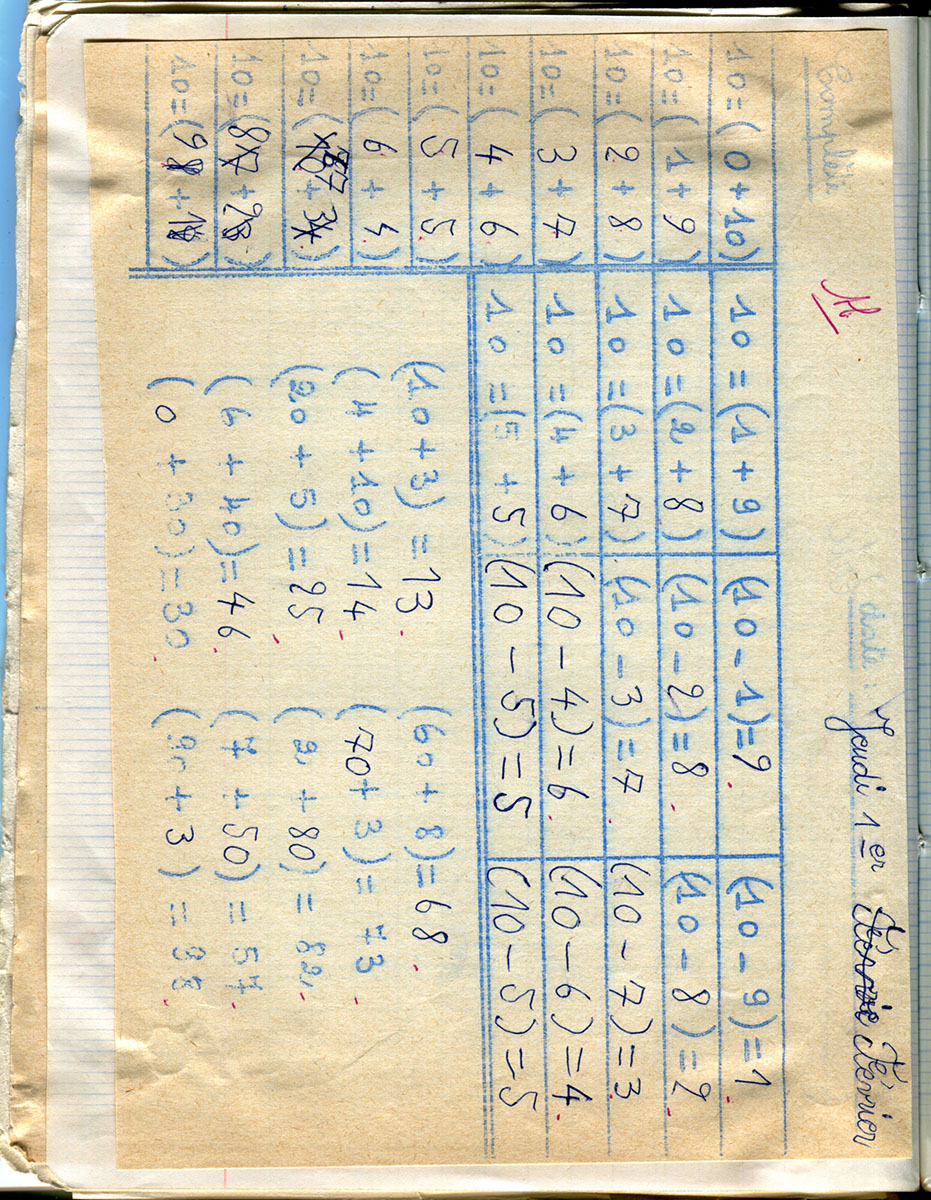 date : Jeudi 1-er Février
Complète
10=(0+10) 10=(1+9) (10-1)=9 (10-9)=1
10=(1+9) 10=(2+8) (10-2)=8 (10-8)=2
10=(2+8) 10=(3+7) (10-3)=7 (10-7)=3
10=(3+7) 10=(4+6) (10-4)=6 (10-6)=4
10=(4+6) 10=(5+5) (10-5)=5 (10-5)=5
10=(5+5) (10+3)=13 (60+8)=68
10=(6+4) (4+10)=14 (70+3)=73
10=(7+3) (20+5)=25 (2+80)=82
10=(8+2) (6+40)=46 (7+50)=57
10=(9+1) (0+30)=30